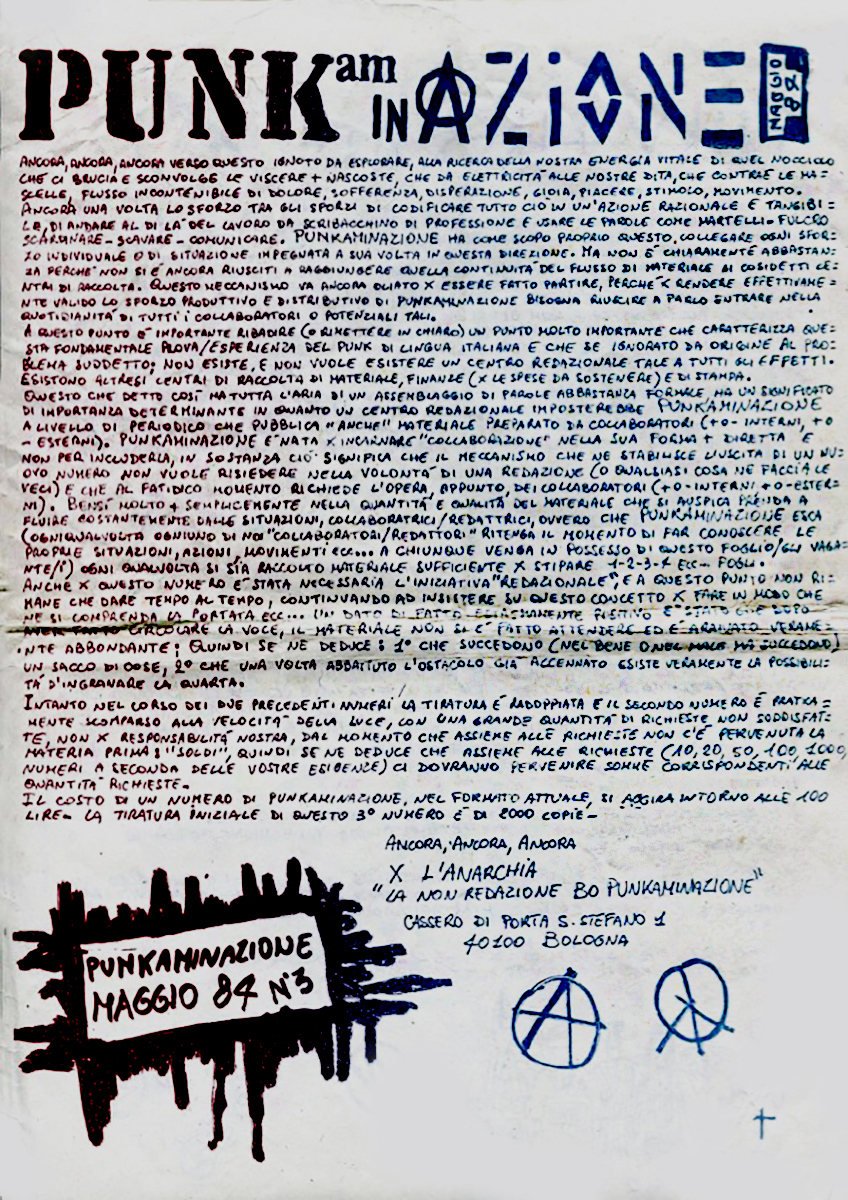 PUNKam INAZiONE MAGGIO 84
ANCORA, ANCORA, ANCORA VERSO QUESTO IGNOTO DA ESPLORARE, ALLA RICERCA DELLA NOSTRA ENERGIA VITALE DI QUEL NOCCIOLO
CHE CI BRUCIA E SCONVOLGE LE VISCERE + NASCOSTE, CHE DA ELETTRICITA' ALLE NOSTRE DITA, CHE CONTRAE LE MA=
SCELLE, FLUSSO INCONTENIBILE DI DOLORE, SOFFERENZA, DISPERAZIONE, GIOIA, PIACERE, STIMOLO, MOVIMENTO.
ANCORA UNA VOLTA LO SFORZO TRA GLI SFORZI DI CODIFICARE TUTTO CIO' IN UN'AZIONE RAZIONALE E TANGIBI=
LE, DI ANDARE AL DI LA' DEL LAVORO DA SCRIBACCHINO DI PROFESSIONE E USARE LE PAROLE COME MARTELLI-FULCRO
SCARDINARE-SCAVARE-COMUNICARE. PUNKAMINAZIONE HA COME SCOPO PROPRIO QUESTO, COLLEGARE OGNI SFOR=
ZO INDIVIDUALE O DI SITUAZIONE IMPEGNATA A SUA VOLTA IN QUESTA DIREZIONE. MA NON E' CHIARAMENTE ABBASTAN=
ZA PERCHE' NON SI E' ANCORA RIUSCITI A RAGGIUNGERE QUELLA CONTINUITA' DEL FLUSSO DI MATERIALE AI COSIDETTI CE=
NTRI DI RACCOLTA. QUESTO MECCANISMO VA ANCORA OLIATO X ESSERE FATTO PARTIRE, PERCHE' X RENDERE EFFETTIVAME=
NTE VALIDO LO SFORZO PRODUTTIVO E DISTRIBUTIVO DI PUNKAMINAZIONE BISOGNA RIUSCIRE A FARLO ENTRARE NELLA
QUOTIDIANITA' DI TUTTI I COLLABORATORI O POTENZIALI TALI.
A QUESTO PUNTO E' IMPORTANTE RIBADIRE (O RIMETTERE IN CHIARO) UN PUNTO MOLTO IMPORTANTE CHE CARATTERIZZA QUE=
STA FONDAMENTALE PROVA/ESPERIENZA DEL PUNK DI LINGUA ITALIANA E CHE SE IGNORATO DA ORIGINE AL PRO=
BLEMA SUDDETTO: NON ESISTE, E NON VUOLE ESISTERE UN CENTRO REDAZIONALE TALE A TUTTI GLI EFFETTI.
ESISTONO ALTRESI' CENTRI DI RACCOLTA DI MATERIALE, FINANZE (X LE SPESE DA SOSTENERE) E DI STAMPA.
QUESTO CHE DETTO COSI' HA TUTTA L'ARIA DI UN ASSEMBLAGGIO DI PAROLE ABBASTANZA FORMALE, HA UN SIGNIFICATO
DI IMPORTANZA DETERMINANTE IN QUANTO UN CENTRO REDAZIONALE IMPOSTEREBBE PUNKAMINAZIONE
A LIVELLO DI PERIODICO CHE PUBBLICA "ANCHE" MATERIALE PREPARATO DA COLLABORATORI (+O- INTERNI, +O
- ESTERNI). PUNKAMINAZIONE E' NATA X INCARNARE "COLLABORAZIONE" NELLA SUA FORMA + DIRETTA E
NON PER INCLUDERLA, IN SOSTANZA CIO' SIGNIFICA CHE IL MECCANISMO CHE NE STABILISCE L'USCITA DI UN NU=
OVO NUMERO NON VUOLE RISIEDERE NELLA VOLONTA' DI UNA REDAZIONE (O QUALSIASI COSA NE FACCIA LE
VECI) E CHE AL FATIDICO MOMENTO RICHIEDE L'OPERA, APPUNTO, DEI COLLABORATORI (+O-INTERNI +O-ESTER=
NI). BENSI' MOLTO + SEMPLICEMENTE NELLA QUANTITA' E QUALITA' DEL MATERIALE CHE SI AUSPICA PRENDA A
FLUIRE COSTANTEMENTE DALLE SITUAZIONI, COLLABORATRICI/REDATTRICI, OVVERO CHE PUNKAMINAZIONE ESCA
(OGNIQUALVOLTA OGNIUNO DI NOI "COLLABORATORI/REDATTORI" RITENGA IL MOMENTO DI FAR CONOSCERE LE
PROPRIE SITUAZIONI, AZIONI, MOVIMENTI ECC... A CHIUNQUE VENGA IN POSSESSO DI QUESTO FOGLIO/GLI VAGA=
NTE/I) OGNI QUALVOLTA SI SIA RACCOLTO MATERIALE SUFFICIENTE X STIPARE 1-2-3-4 ECC... FOGLI.
ANCHE X QUESTO NUMERO E' STATA NECESSARIA L'INIZIATIVA "REDAZIONALE", E A QUESTO PUNTO NON RI=
MANE CHE DARE TEMPO AL TEMPO, CONTINUANDO AD INSISTERE SU QUESTO CONCETTO X FARE IN MODO CHE
NE SI COMPRENDA LA PORTATA ECC... UN DATO DI FATTO POSITIVO E' STATO CHE DOPO
AVER FATTO CIRCOLARE LA VOCE, IL MATERIALE NON SI E' FATTO ATTENDERE ED E' ARRIVATO VERAME=
NTE ABBONDANTE; QUINDI SE NE DEDUCE: 1° CHE SUCCEDONO (NEL BENE O NEL MALE MA SUCCEDONO)
UN SACCO DI COSE, 2° CHE UNA VOLTA ABBATTUTO L'OSTACOLO GIA' ACCENNATO ESISTE VERAMENTE LA POSSIBILI=
TA' D'INGRANARE LA QUARTA.
INTANTO NEL CORSO DEI DUE PRECEDENTI NUMERI LA TIRATURA E' RADDOPPIATA E IL SECONDO NUMERO E' PRATICA=
MENTE SCOMPARSO ALLA VELOCITA' DELLA LUCE, CON UNA GRANDE QUANTITA' DI RICHIESTE NON SODDISFAT=
TE, NON X RESPONSABILITA' NOSTRA, DAL MOMENTO CHE ASSIEME ALLE RICHIESTE NON C'E' PERVENUTA LA
MATERIA PRIMA: "SOLDI", QUINDI SE NE DEDUCE CHE ASSIEME ALLE RICHIESTE (10, 20, 50, 100, 1000,
NUMERI A SECONDA DELLE VOSTRE ESIGENZE) CI DOVRANNO PERVENIRE SOMME CORRISPONDENTI ALLE
QUANTITA' RICHIESTE.
IL COSTO DI UN NUMERO DI PUNKAMINAZIONE, NEL FORMATO ATTUALE, SI AGGIRA INTORNO ALLE 100
LIRE- LA TIRATURA INIZIALE DI QUESTO 3° NUMERO E' DI 2000 COPIE-
ANCORA, ANCORA, ANCORA
X L'ANARCHIA
"LA NON REDAZIONE BO PUNKAMINAZIONE"
CASSERO DI PORTA S. STEFANO 1
40100 BOLOGNA
PUNKAMINAZIONE
MAGGIO 84 N°3